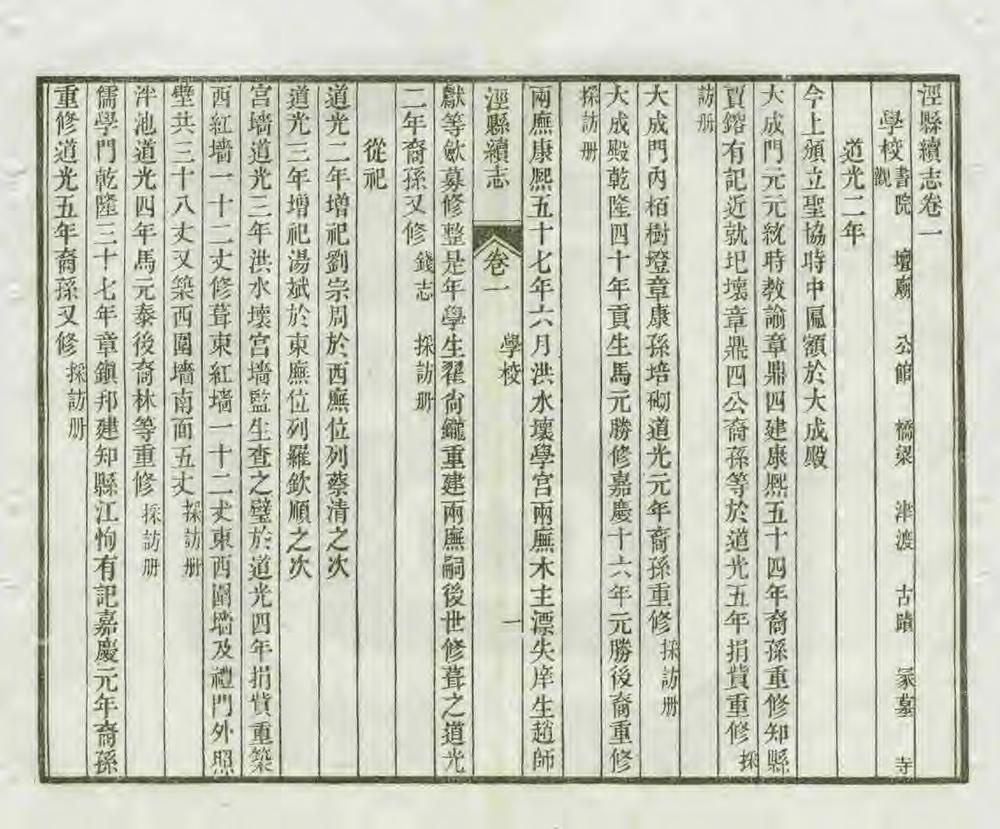 涇縣續志卷一
學校 書院 壇廟 公館 橋梁 津渡 古蹟 冢墓 寺觀
道光二年
今上頒立聖協時中匾額於大成殿
大成門元元統時教諭章鼎四建康熙五十四年裔孫重修知縣
賈鎔有記近就圯壞章鼎四公裔孫等於道光五年捐貲重修 採
訪册
大成門內栢樹壇章康孫培砌道光元年裔孫重修 採訪册
大成殿乾隆四十年貢生馬元勝修嘉慶十六年元勝後裔重修
採訪册
兩廡康熙五十七年六月洪水壞學宮兩廡木主漂失庠生趙師
涇縣續志 卷一 學校 一
獻等斂募修整是年學生翟尙孅重建兩廡嗣後世修葺之道光
二年裔孫又修 錢志 採訪册
從祀
道光二年增祀劉宗周於西廡位列蔡清之次
道光三年增祀湯斌於東廡位列羅欽順之次
宮墻道光三年洪水壞宮墻監生查之璧於道光四年捐貲重築
西紅墻一十二丈修葺東紅墻一十二丈東西圍墻及禮門外照
壁共三十八丈又築西圍墻南面五丈 採訪册
泮池道光四年馬元泰後裔林等重修 採訪册
儒學門乾隆三十七年章鎭邦建知縣江恂有記嘉慶元年裔孫
重修道光五年裔孫又修 採訪册